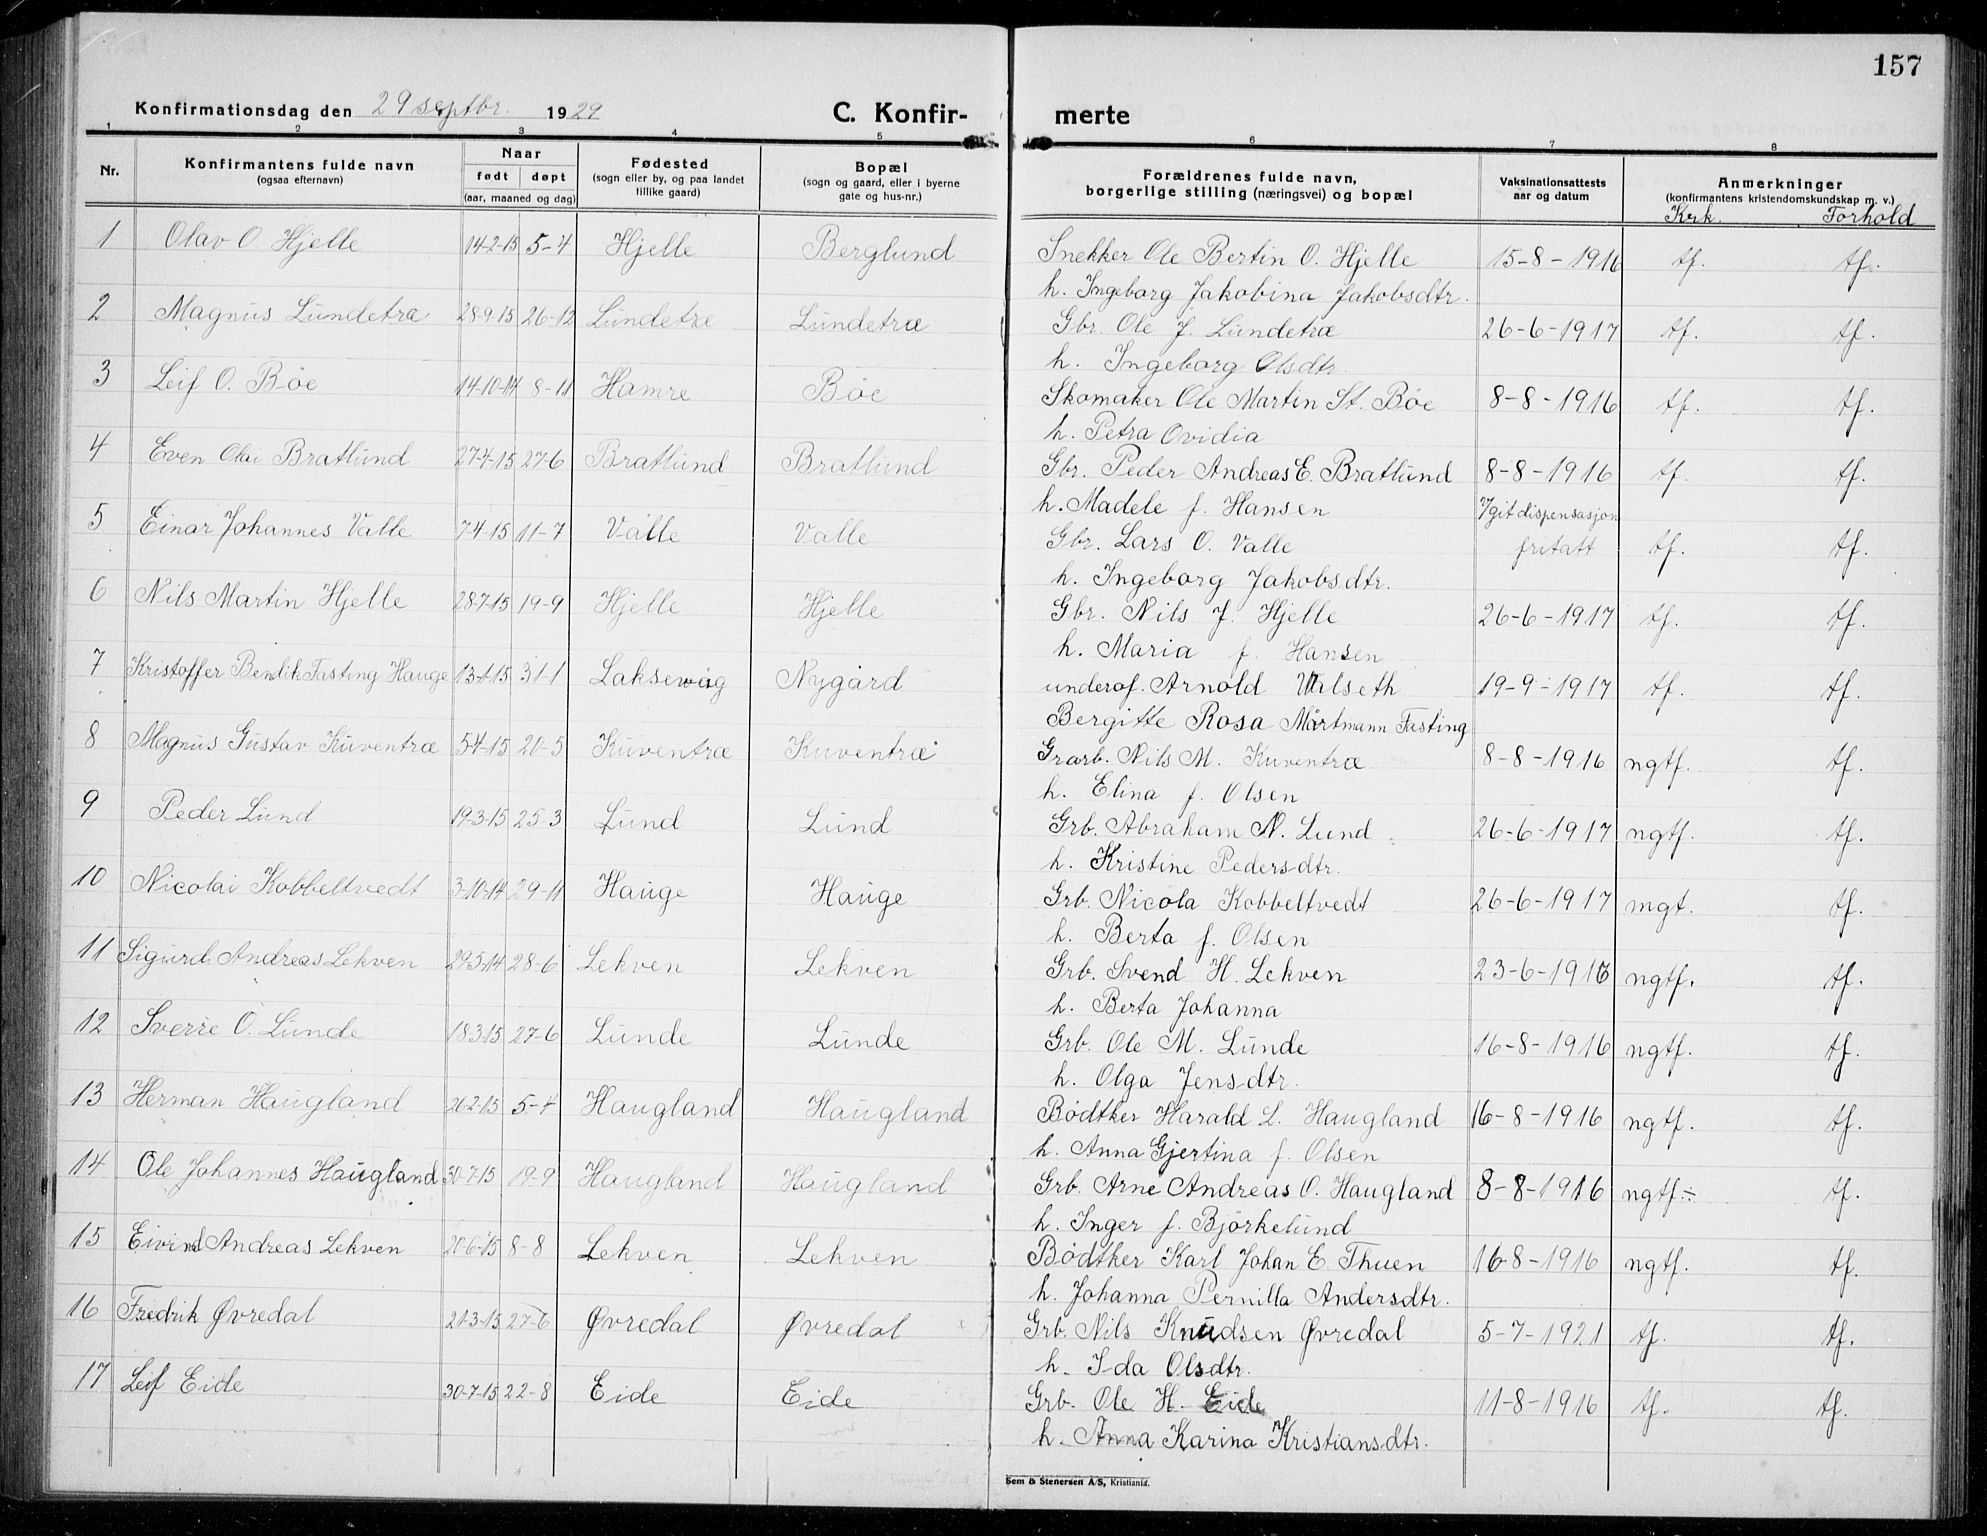 157
Konfirmationsdag den 29 septbr. 1929 C. Konfir- merte
1 2 3 4 5 6 7 8
Nr. Konfirmantens fulde navn (ogsaa efternavn) Naar født døpt (aar, maaned og dag) Fødested (sogn eller by, og paa landet tillike gaard) Bopæl (sogn og gaard, eller i byerne gate og hus-nr.) Forældrenes fulde navn, borgerlige stilling (næringsvei) og bopæl Vaksinationsattests aar og datum Anmerkninger (konfirmantens kristendomskundskap m. v.) Krk. Forhold
1 Olav O. Hjelle 14-2-15 5-4 Hjelle Berglund Snekker Ole Bertin O. Hjelle 15-8-1916 tf. tf.
h. Ingeborg Jakobina Jakobsdtr.
2 Magnus Lundetræ 28-9-15 26-12 Lundetræ Lundetræ Gbr. Ole J. Lundetræ 26-6-1917 tf. tf.
h. Ingeborg Olsdtr.
3 Leif O. Bøe 14-10-14 8-11 Hamre Bøe Skomaker Ole Martin St. Bøe 8-8-1916 tf. tf.
h. Petra Ovidia
4 Even Olai Bratlund 27-4-15 27-6 Bratlund Bratlund Gbr. Peder Andreas E. Bratlund 8-8-1916 tf. tf.
h. Madele f. Hansen
5 Einar Johannes Valle 7-4-15 11-7 Valle Valle Gbr. Lars O. Valle V/git dispensasjon fritatt tf. tf.
h. Ingeborg Jakobsdtr.
6 Nils Martin Hjelle 28-7-15 19-9 Hjelle Hjelle Gbr. Nils J. Hjelle 26-6-1917 tf. tf.
h. Maria f. Hansen
7 Kristoffer Bendik Fasting Hauge 13-1-15 31-1 Laksevåg Nygård underof. Arnold Ulseth 19-9-1917 tf. tf.
Bergitte Rosa Mårtmann Fasting
8 Magnus Gustav Kuventræ 5-4-15 20-5 Kuventræ Kuventræ Grarb. Nils M. Kuventræ 8-8-1916 ngtf. tf.
h. Elina f. Olsen
9 Peder Lund 19-3-15 25-3 Lund Lund Grb. Abraham N. Lund 26-6-1917 ngtf. tf.
h. Kristine Pedersdtr.
10 Nicolai Kobbeltvedt 3-10-14 29-11 Hauge Hauge Grb. Nicola Kobbeltvedt 26-6-1917 mgt. tf.
h. Berta f. Olsen
11 Sigurd Andreas Lekven 29-5-14 28-6 Lekven Lekven Grb. Svend H. Lekven 23-6-1916 ngtf. tf.
h. Berta Johanna
12 Sverre O. Lunde 18-3-15 27-6 Lunde Lunde Grb. Ole M. Lunde 16-8-1916 ngtf. tf.
h. Olga Jensdtr.
13 Herman Haugland 26-2-15 5-4 Haugland Haugland Bødtker Harald L. Haugland 16-8-1916 ngtf. tf.
h. Anna Gjertina f. Olsen
14 Ole Johannes Haugland 30-7-15 19-9 Haugland Haugland Grb. Arne Andreas O. Haugland 8-8-1916 ngtf÷ tf.
h. Inger f. Björkelund
15 Eivind Andreas Lekven 20-6-15 8-8 Lekven Lekven Bødtker Karl Johan E. Thuen 16-8-1916 ngtf. tf.
h. Johanna Pernilla Andersdtr.
16 Fredrik Øvredal 21-3-15 27-6 Øvredal Øvredal Grb. Nils Knudsen Øvredal 5-7-1921 tf. tf.
h. Ida Olsdtr.
17 Leif Eide 30-7-15 22-8 Eide Eide Grb. Ole H. Eide 11-8-1916 tf. tf.
h. Anna Karina Kristiansdtr.
Sem & Stenersen A/S, Kristiania.